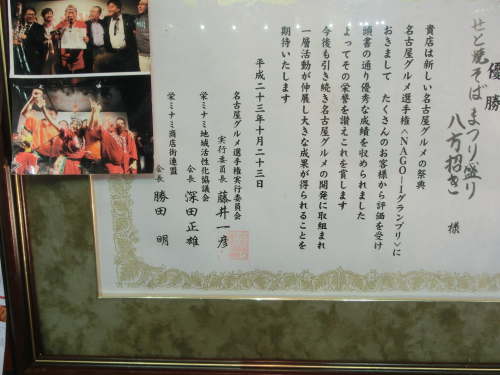 優勝
せと焼そば まつり盛り
八方招き 様
貴店は新しい名古屋グルメの祭典
名古屋グルメ選手権〈NAGO-1グランプリ〉に
おきまして たくさんのお客様から評価を受け
頭書の通り優秀な成績を収められました
よってその栄誉を讃えこれを賞します
今後も引き続き名古屋グルメの開発に取組まれ
一層活動が伸展し大きな成果が得られることを
期待いたします
平成二十三年十月二十三日
名古屋グルメ選手権実行委員会
実行委員長 藤井一彦
栄ミナミ地域活性化協議会
会長 深田正雄
栄ミナミ商店街連盟
会長 勝田 明